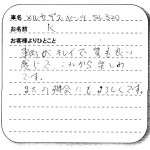 車名 メルセデスベンツ SL 550
お名前 K
お客様よりひとこと
車両もキレイで質も良い
感じで これから楽しみ
です。
またの機会にもよろしくです。